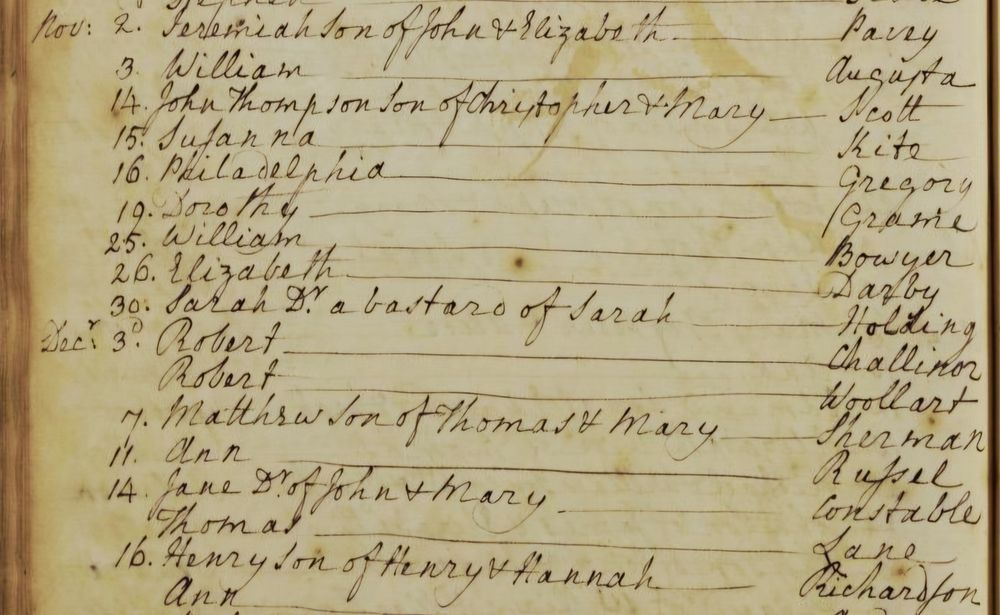 Stephen
Nov: 2. Jeremiah Son of John & Elizabeth Pavey
3. William Augusta
14. John Thompson Son of Christopher & Mary Scott
15. Susanna Kite
16. Philadelphia Gregory
19. Dorothy Grame
25. William Bowyer
26. Elizabeth Darby
30. Sarah Dr. a bastard of Sarah Holding
Decr. 3d. Robert Challinor
Robert Woollart
7. Matthew Son of Thomas & Mary Sherman
11. Ann Russel
14. Jane Dr. of John & Mary Constable
Thomas Lane
16. Henry Son of Henry & Hannah Richardson
Ann